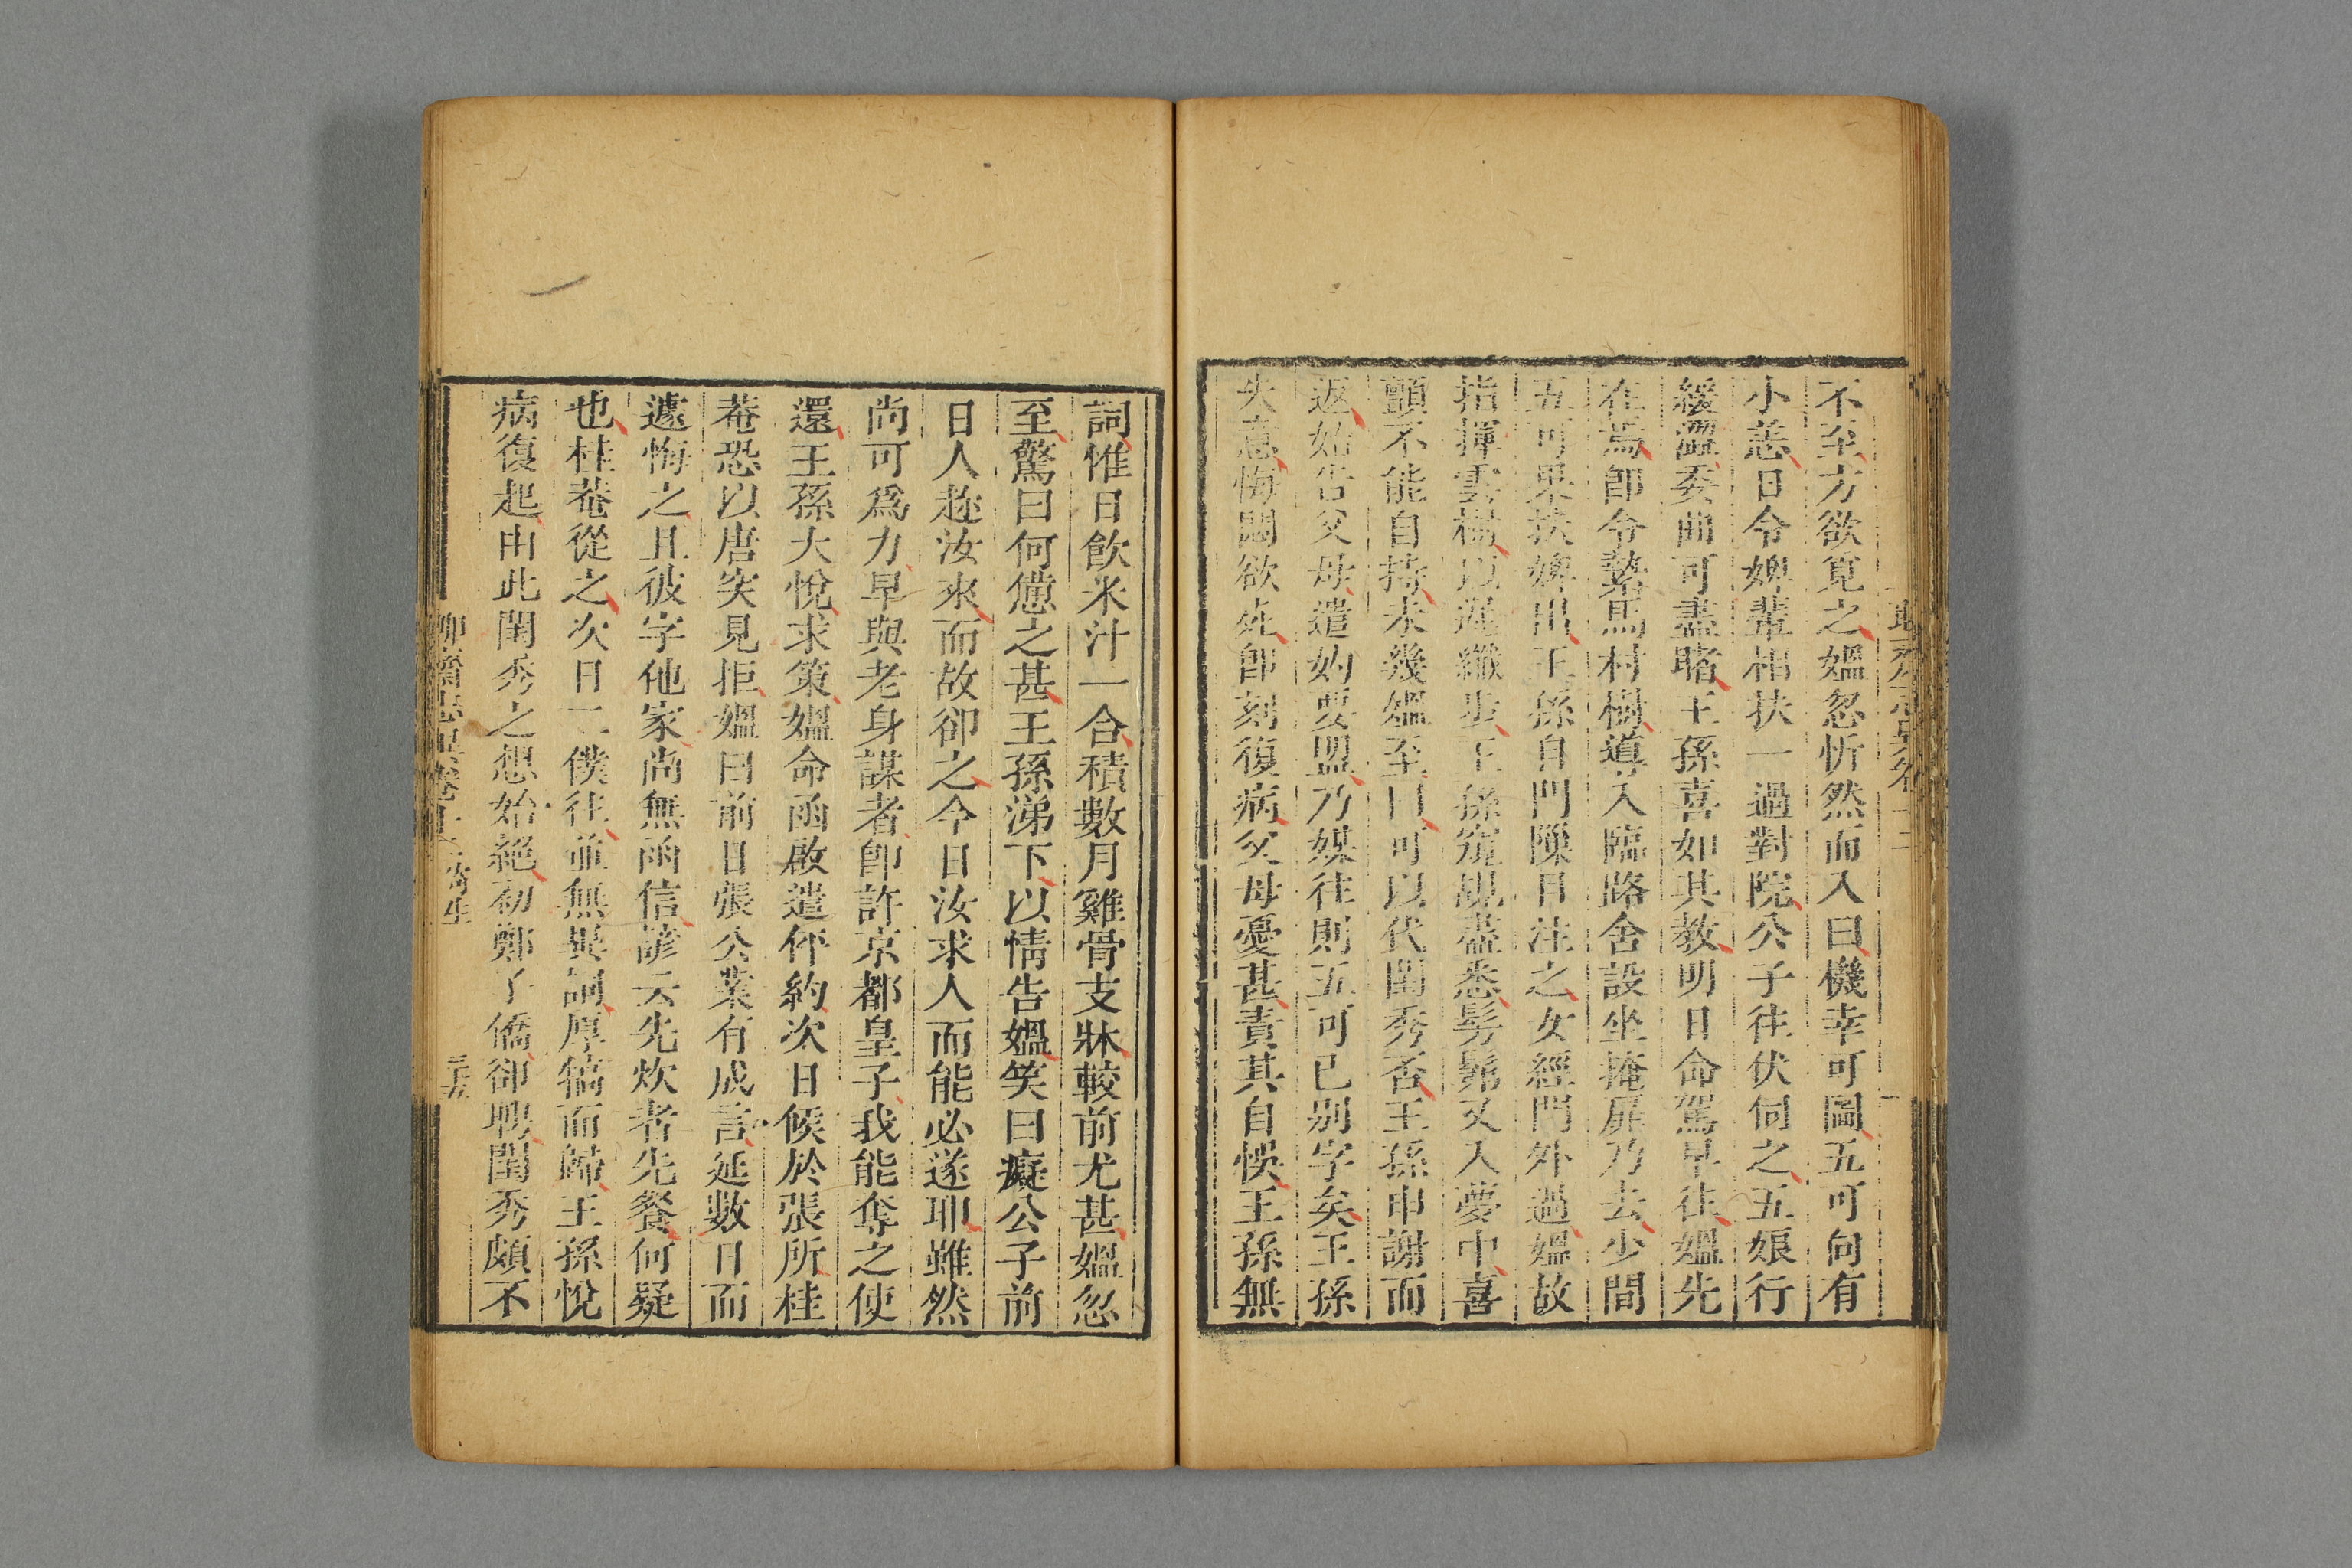 不至方欲覓之媼忽忻然而入曰機幸可圖五可向有
小恙日令婢輩相扶一過對院公子往伏伺之五娘行
緩澀委曲可盡睹王孫喜如其教明日命駕早往媼先
在焉卽令縶馬村樹導入臨路舍設坐掩扉乃去少間
五可果扶婢出王孫自門隙目注之女經門外過媼故
指揮雲樹以遲纖步王孫窺覘盡悉髣髴又入夢中喜
顫不能自持未幾媼至曰可以代閨秀否王孫申謝而
返始告父母遣妁要盟乃媒往則五可已别字矣王孫
失意悔悶欲死卽刻復病父母憂甚責其自悞王孫無
詞惟日飮米汁一合積數月雞骨支牀較前尤甚媼忽
至驚曰何憊之甚王孫涕下以情告媼笑曰癡公子前
日人趂汝來而故卻之今日汝求人而能必遂耶雖然
尚可爲力早與老身謀者卽許京都皇子我能奪之使
還王孫大悅求策媼命函啟遣伻約次日候於張所桂
菴恐以唐突見拒媼曰前日張公業有成言延數日而
遽悔之且彼字他家尚無函信諺云先炊者先餐何疑
也桂菴從之次日二僕往並無異詞厚犒而歸王孫悅
病復起由此閨秀之想始絕初鄭子僑卻聘閨秀頗不
聊齋志異卷十二
三十五